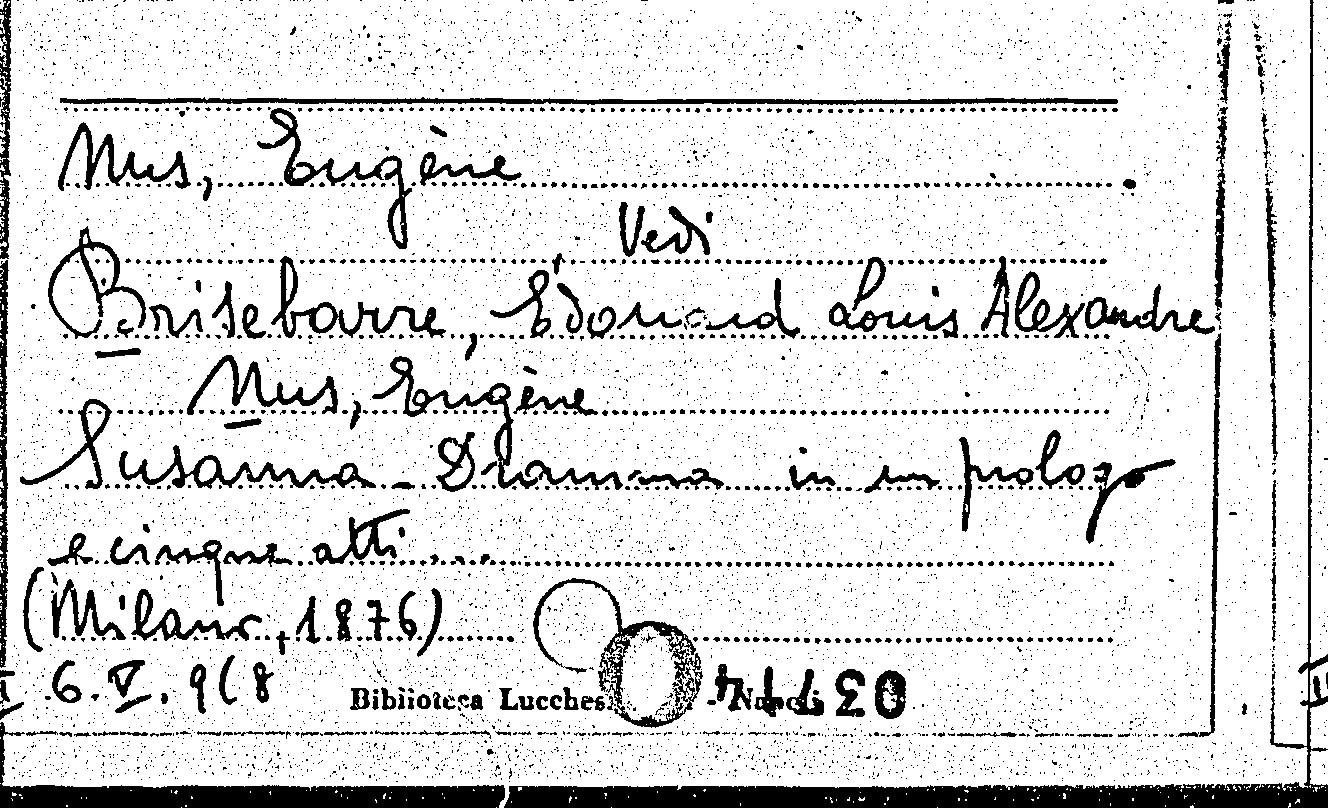 Nus, Eugène
Vedi
Brisebarre, Édouard Louis Alexandre
Nus, Eugène
Susanna - Dramma in un prologo
e cinque atti...
(Milano, 1876)
6. V. 9(8
Biblioteca Lucches. - Napoli